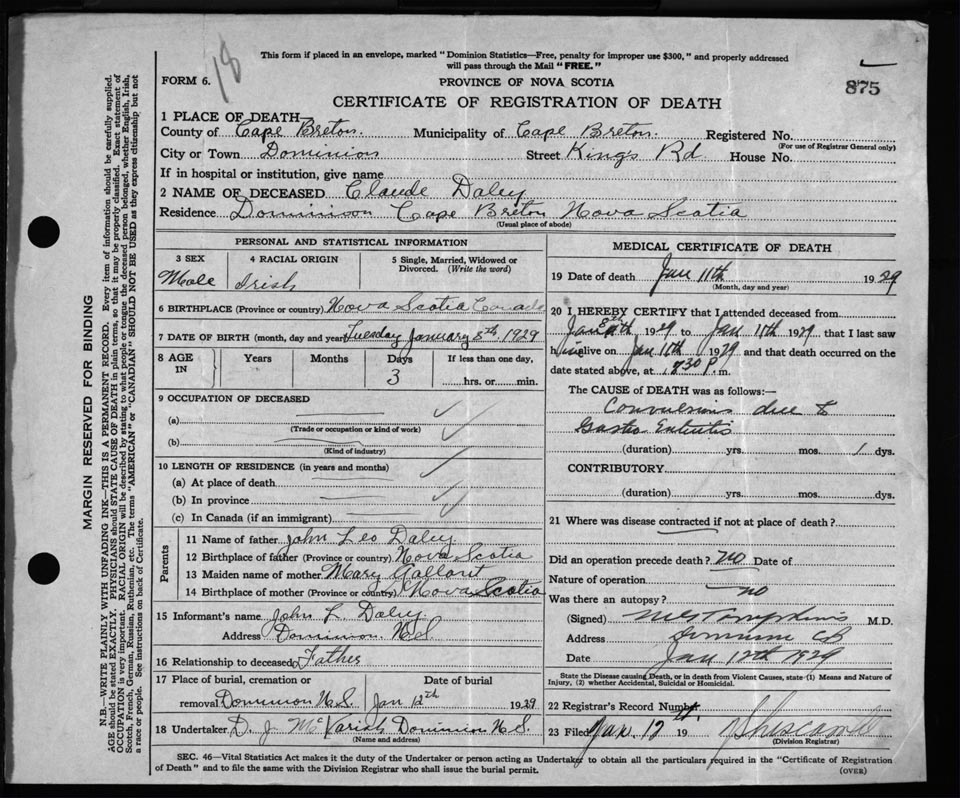 18
This form if placed in an envelope, marked "Dominion Statistics—Free, penalty for improper use $300," and properly addressed
will pass through the Mail "FREE."
FORM 6.
PROVINCE OF NOVA SCOTIA
875
CERTIFICATE OF REGISTRATION OF DEATH
1 PLACE OF DEATH—
County of Cape Breton. Municipality of Cape Breton. Registered No.
(For use of Registrar General only)
City or Town Dominion Street Kings Rd. House No.
If in hospital or institution, give name
2 NAME OF DECEASED Claude Daley
Residence Dominion Cape Breton Nova Scotia
(Usual place of abode)
PERSONAL AND STATISTICAL INFORMATION
3 SEX 4 RACIAL ORIGIN 5 Single, Married, Widowed or
Divorced. (Write the word)
Male Irish
6 BIRTHPLACE (Province or country) Nova Scotia Canada
7 DATE OF BIRTH (month, day and year) Tuesday January 8th, 1929
8 AGE IN Years Months Days If less than one day,
3 hrs. or min.
9 OCCUPATION OF DECEASED
(a)
(Trade or occupation or kind of work)
(b)
(Kind of industry)
10 LENGTH OF RESIDENCE (in years and months)
(a) At place of death
(b) In province
(c) In Canada (if an immigrant)
Parents
11 Name of father John Leo Daley
12 Birthplace of father (Province or country) Nova Scotia
13 Maiden name of mother Mary Gallant
14 Birthplace of mother (Province or country) Nova Scotia
15 Informant's name John L. Daley
Address Dominion N.S.
16 Relationship to deceased Father
17 Place of burial, cremation or Date of burial
removal Dominion N.S. Jan 12th 1929
18 Undertaker D. J. McVarish Dominion N.S.
(Name and address)
MEDICAL CERTIFICATE OF DEATH
19 Date of death Jan 11th 1929
(Month, day and year)
20 I HEREBY CERTIFY that I attended deceased from
Jan 1929 to Jan 11th 1929 that I last saw
him alive on Jan 11th 1929 and that death occurred on the
date stated above, at 7 30 P. m.
The CAUSE of DEATH was as follows:—
Convulsions due to
Gastro Enteritis
(duration) yrs. mos. 1 dys.
CONTRIBUTORY
(duration) yrs. mos. dys.
21 Where was disease contracted if not at place of death?
Did an operation precede death? no Date of
Nature of operation
Was there an autopsy? no
(Signed) Tompkins M.D.
Address Dominion CB
Date Jan 12th 1929
State the Disease causing Death, or in death from Violent Causes, state (1) Means and Nature of
Injury, (2) whether Accidental, Suicidal or Homicidal.
22 Registrar's Record Number
23 Filed Jan. 12 19
(Division Registrar)
SEC. 46—Vital Statistics Act makes it the duty of the Undertaker or person acting as Undertaker to obtain all the particulars required in the "Certificate of Registration
of Death" and to file the same with the Division Registrar who shall issue the burial permit. (OVER)
MARGIN RESERVED FOR BINDING
N.B.—WRITE PLAINLY WITH UNFADING INK—THIS IS A PERMANENT RECORD. Every item of information should be carefully supplied.
AGE should be stated EXACTLY. PHYSICIANS should STATE CAUSE OF DEATH in plain terms, so that it may be properly classified. Exact statement of
OCCUPATION is very important. RACIAL ORIGIN will be described by stating to what people or tongue the deceased person belonged, whether English, Irish,
Scotch, French, German, Russian, Ruthenian, etc. The terms "AMERICAN" or "CANADIAN" SHOULD NOT BE USED as they express citizenship but not
a race or people. See instructions on back of Certificate.